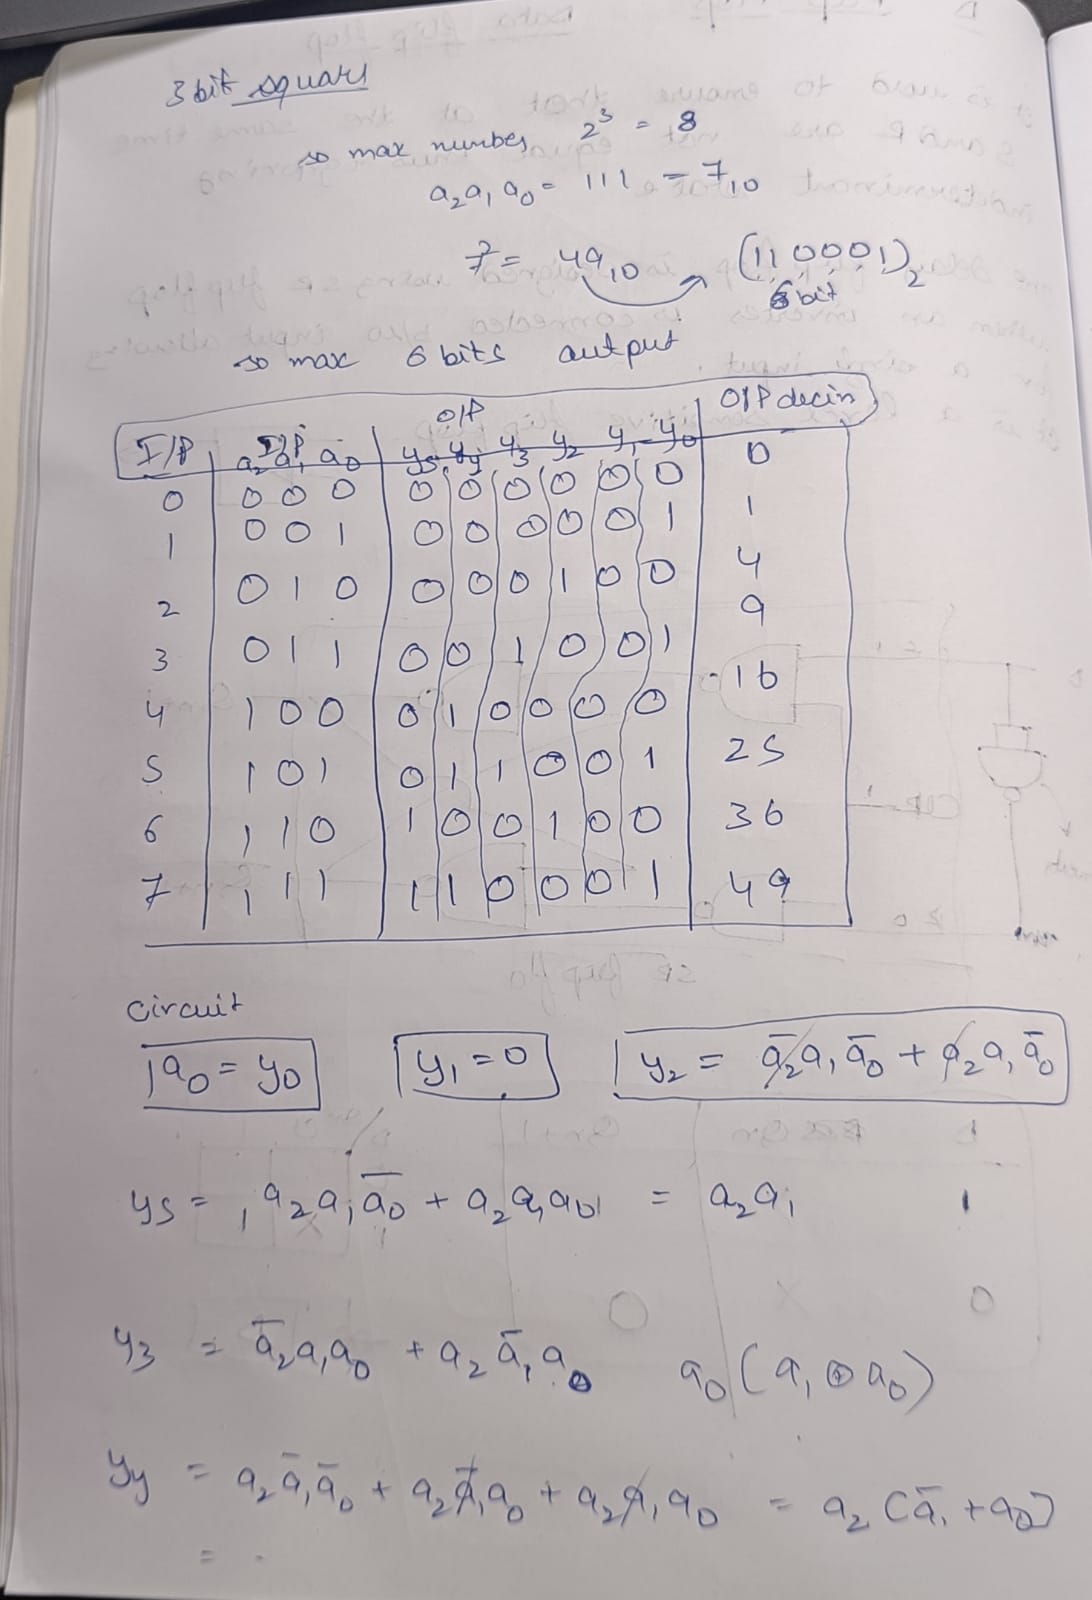 3 bit square
so max number 2³ = 8
a₂a₁a₀ = 111 = 7₁₀
7 = 49₁₀ (110001)₂
6 bit
so max 6 bits output
I/P I/P O/P O/P decim
a₂ a₁ a₀ y₅ y₄ y₃ y₂ y₁ y₀
0 0 0 0 0 0 0 0 0 0 0
1 0 0 1 0 0 0 0 0 1 1
2 0 1 0 0 0 0 1 0 0 4
3 0 1 1 0 0 1 0 0 1 9
4 1 0 0 0 1 0 0 0 0 16
5 1 0 1 0 1 1 0 0 1 25
6 1 1 0 1 0 0 1 0 0 36
7 1 1 1 1 1 0 0 0 1 49
Circuit
a₀ = y₀ y₁ = 0 y₂ = a̅₂a₁a̅₀ + a₂a₁a̅₀
y₅ = a₂a₁a̅₀ + a₂a₁a₀ = a₂a₁
y₃ = a̅₂a₁a₀ + a₂a̅₁a₀ a₀(a₁⊕a₀)
y₄ = a₂a̅₁a̅₀ + a₂a̅₁a₀ + a₂a₁a₀ = a₂(a̅₁+a₀)
=